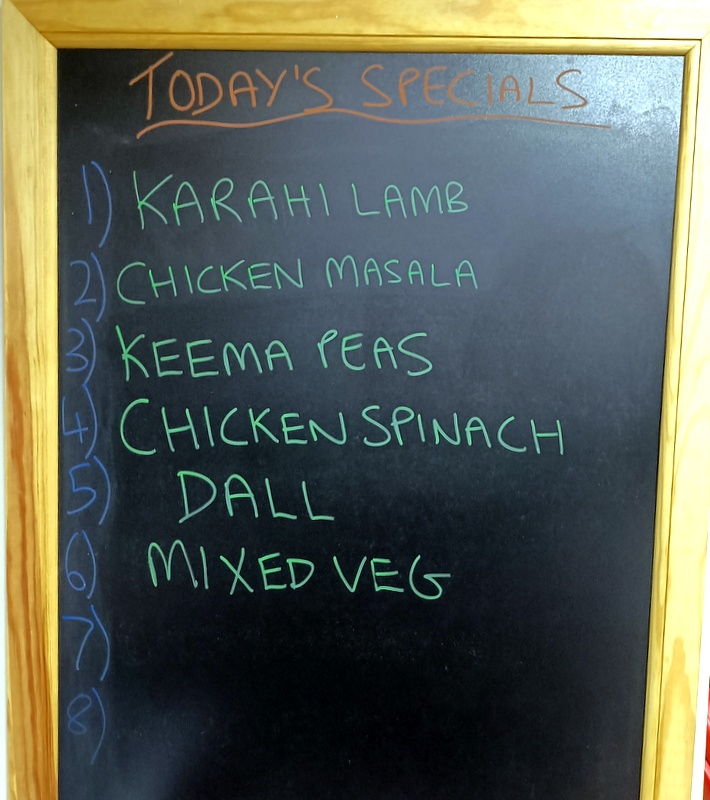 TODAY'S SPECIALS
1) KARAHI LAMB
2) CHICKEN MASALA
3) KEEMA PEAS
4) CHICKEN SPINACH
5) DALL
6) MIXED VEG
7)
8)